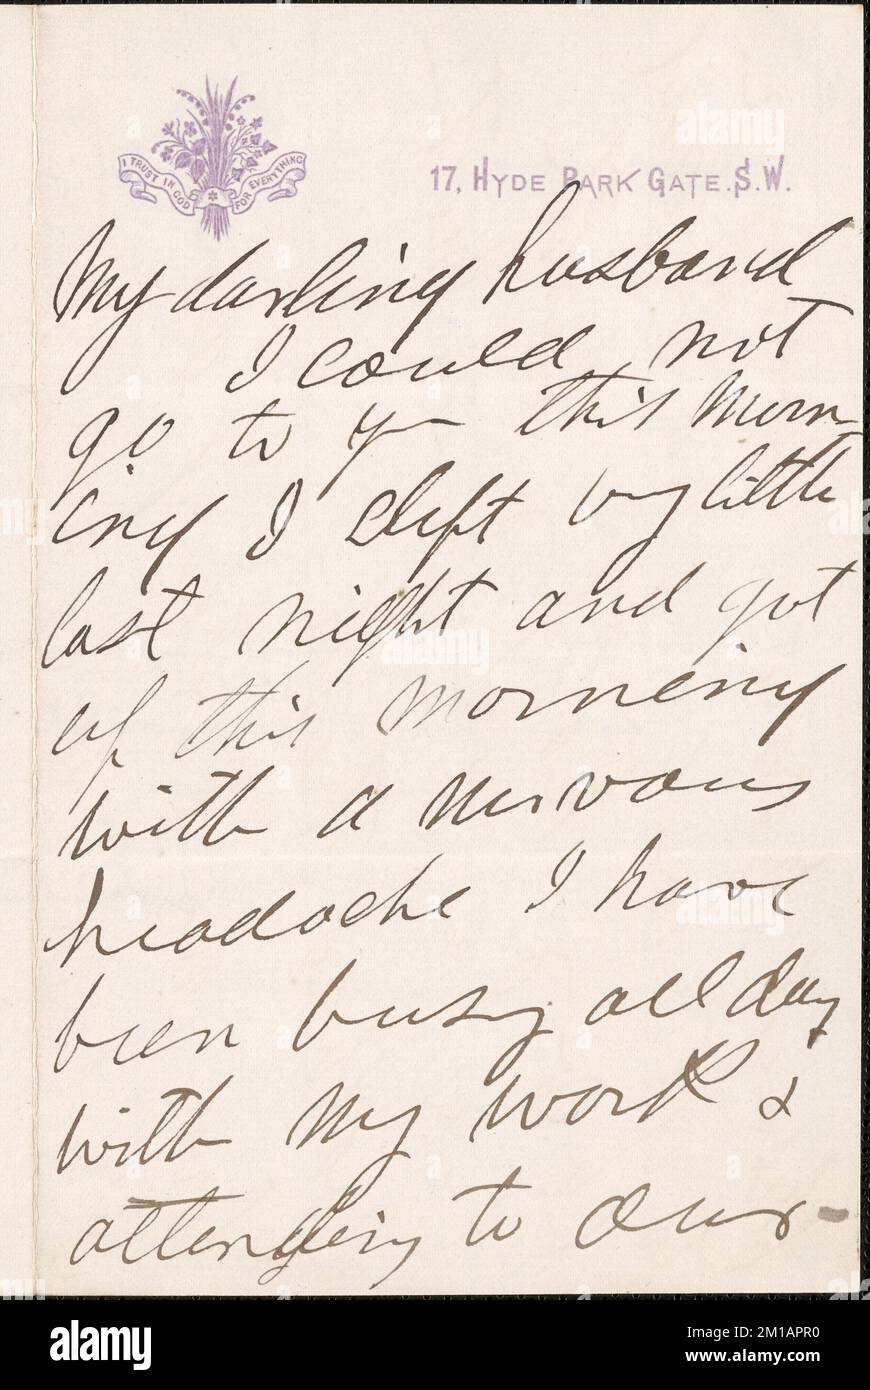 I TRUST IN GOD FOR EVERYTHING
17, HYDE PARK GATE. S.W.
My darling husband
I could not
go to yr this morn
ing I slept vy little
last night and got
up this morning
with a nervous
headache I have
been busy all day
with my work &
attending to our
alamy
Image ID: 2M1APR0
www.alamy.com